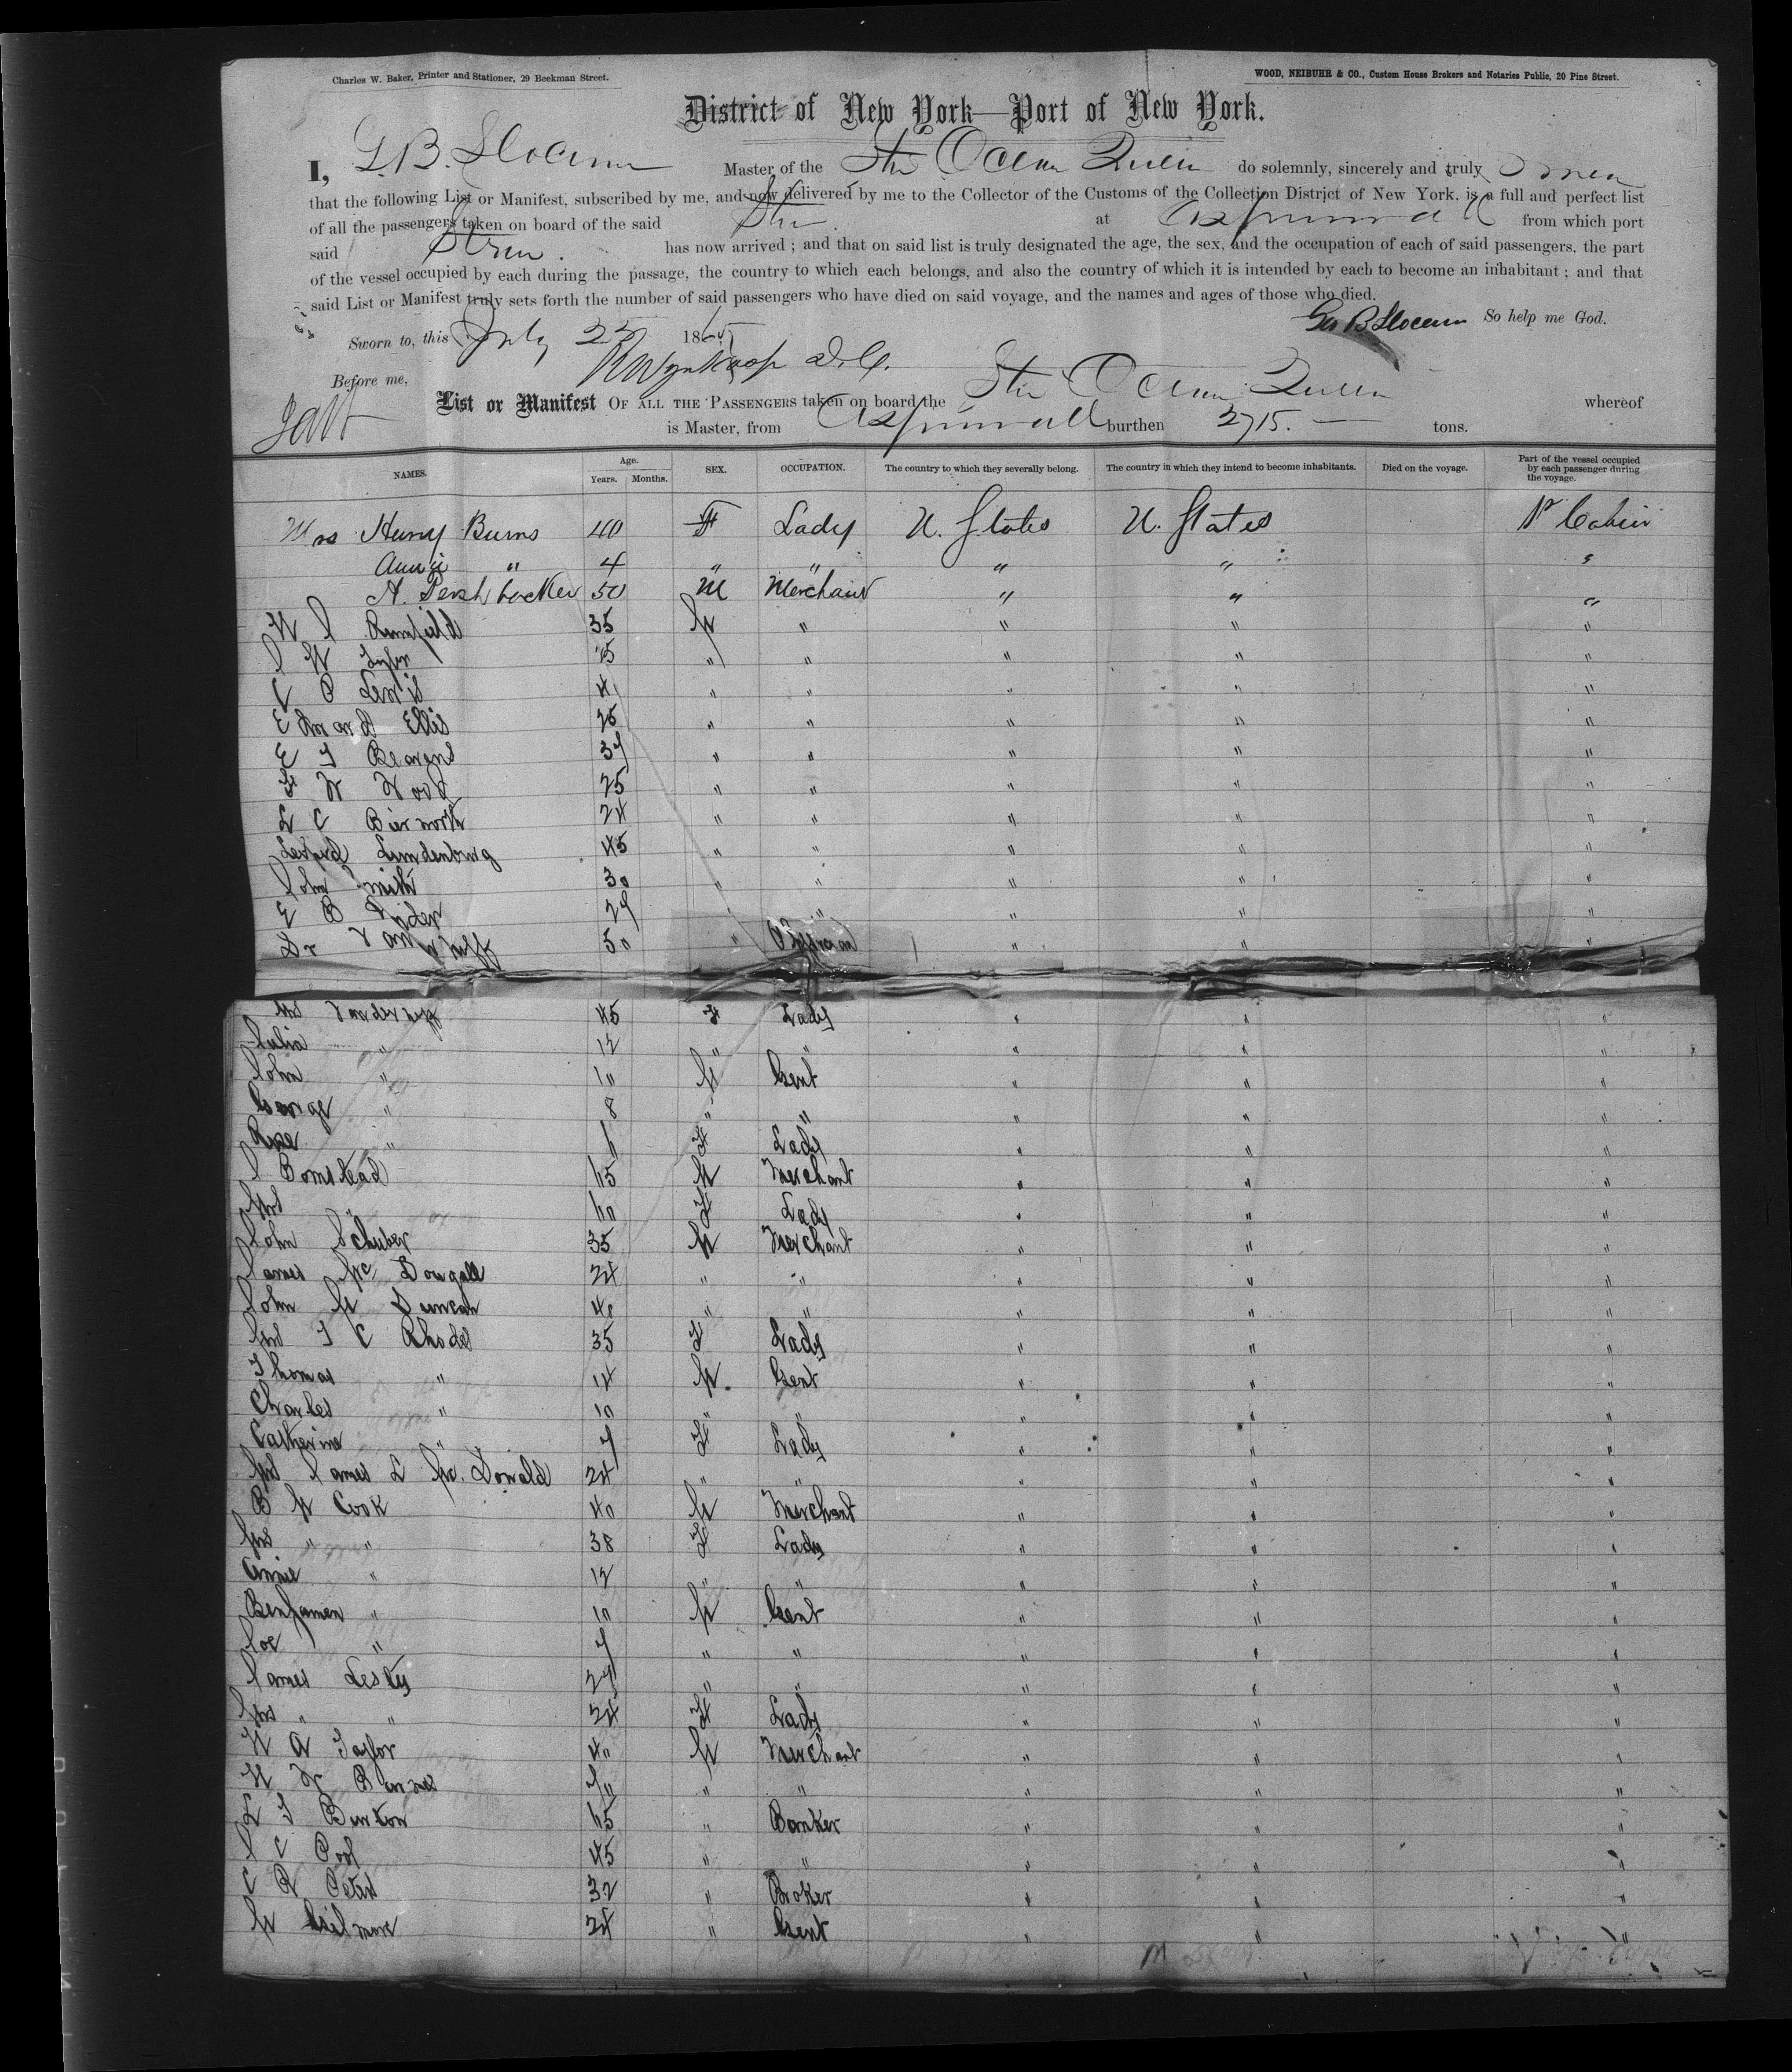 Charles W. Baker, Printer and Stationer, 29 Beekman Street.
WOOD, NEIBUHR & CO., Custom House Brokers and Notaries Public, 20 Pine Street.
District of New York—Port of New York.
I, G. B. Slocum Master of the Str Ocean Queen do solemnly, sincerely and truly swear
that the following List or Manifest, subscribed by me, and now delivered by me to the Collector of the Customs of the Collection District of New York, is a full and perfect list
of all the passengers taken on board of the said Str at Aspinwall from which port
said Strm. has now arrived ; and that on said list is truly designated the age, the sex, and the occupation of each of said passengers, the part
of the vessel occupied by each during the passage, the country to which each belongs, and also the country of which it is intended by each to become an inhabitant ; and that
said List or Manifest truly sets forth the number of said passengers who have died on said voyage, and the names and ages of those who died.
Geo B Slocum So help me God.
Sworn to, this July 25 1865
Before me,
List or Manifest OF ALL THE PASSENGERS taken on board the Str Ocean Queen whereof
is Master, from Aspinwall burthen 2715. — tons.
NAMES. Age. Years. Months. SEX. OCCUPATION. The country to which they severally belong. The country in which they intend to become inhabitants. Died on the voyage. Part of the vessel occupied by each passenger during the voyage.
Mrs Henry Burns 40 F Lady U. States U. States Cabin
Annie " 4 " " " " "
A. 50 M Merchant " " "
35 M " " " "
" " " " "
C P Lewis " " " " "
Edward Ellis 25 " " " " "
E T 37 " " " " "
F W Wood 25 " " " " "
L C 24 " " " " "
45 " " " " "
John Smith 30 " " " " "
E B 29 " " " " "
Dr 50 " " " "
Mrs 45 F Lady " " "
Julia " 12 " " " " "
John " 10 M Gent " " "
George " 8 " " " " "
Rose " 6 F Lady " " "
J Bomstead 65 M Merchant " " "
Mrs " 60 F Lady " " "
John Schuber 35 M Merchant " " "
James Mc Dougall 24 " " " " "
John M Duncan 40 " " " " "
Mrs T C Rhodes 35 F Lady " " "
Thomas " 14 M. Gent " " "
Charles " 10 " " " " "
Catherine " 7 F Lady " " "
Mrs James L Mc. Donald 24 " " " " "
B M Cook 40 M Merchant " " "
Mrs " " 38 F Lady " " "
Annie " 12 " " " " "
Benjamen " 10 M Gent " " "
Joe " 7 " " " " "
James 27 " " " " "
Mrs " " 24 F Lady " " "
W A Taylor 40 M Merchant " " "
70 " " " " "
L T Burton 65 " Banker " " "
J C Pool 45 " " " " "
C R Peters 32 " Broker " " "
M Gilmore 24 " Gent " " "